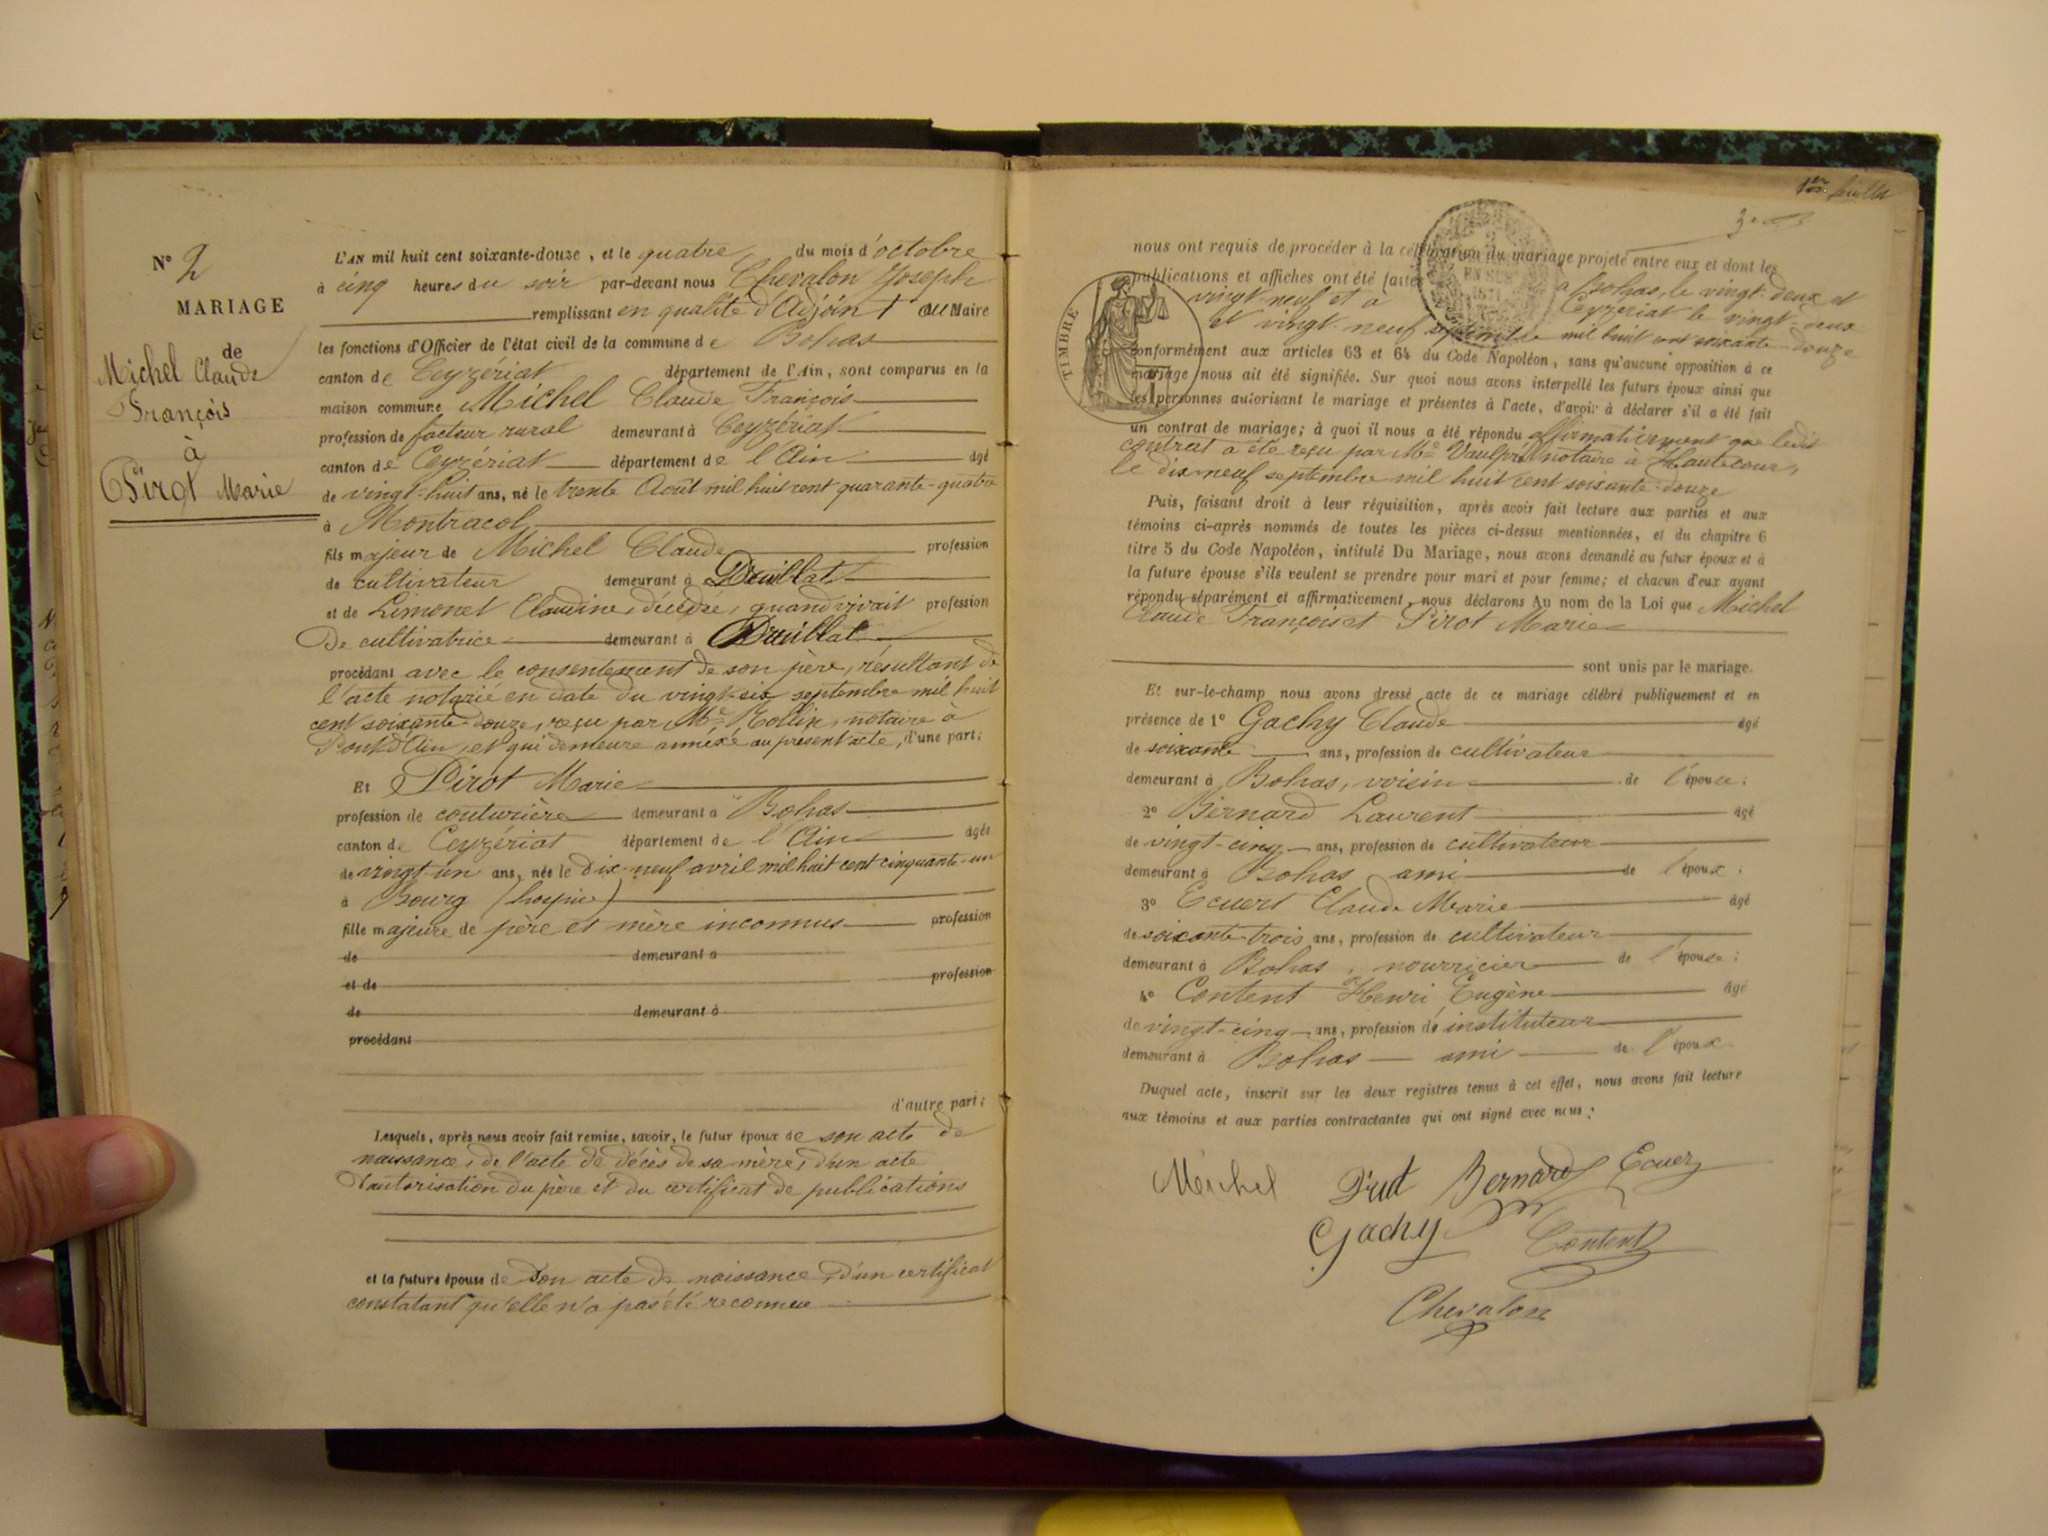 N° 2
MARIAGE
de
Michel Claude
François
à
Pirot Marie
L'AN mil huit cent soixante-douze, et le quatre du mois d'octobre
à cinq heures du soir par-devant nous Chevalon Joseph
remplissant en qualité d'Adjoint au Maire
les fonctions d'Officier de l'état civil de la commune de Bohas
canton de Ceyzériat département de l'Ain, sont comparus en la
maison commune Michel Claude François
profession de facteur rural demeurant à Ceyzériat
canton de Ceyzériat département de l'Ain âgé
de vingt-huit ans, né le trente Août mil huit cent quarante-quatre
à Montracol
fils majeur de Michel Claude profession
de cultivateur demeurant à Druillat
et de Limonet Claudine, décédée, quand vivait profession
De cultivatrice demeurant à Druillat
procédant avec le consentement de son père, résultant de
l'acte notarié en date du vingt-six septembre mil huit
cent soixante-douze, reçu par Me Rollin, notaire à
Pont d'Ain, et qui demeure annéxé au présent acte, d'une part;
Et Pirot Marie
profession de couturière demeurant à Bohas
canton de Ceyzériat département de l'Ain âgée
de vingt-un ans, née le dix-neuf avril mil huit cent cinquante-un
à Bourg (hospice)
fille majeure de père et mère inconnus profession
de demeurant a
et de profession
de demeurant à
procédant
d'autre part;
Lesquels, après nous avoir fait remise, savoir, le futur époux de son acte de
naissance, de l'acte de décès de sa mère, d'un acte
d'autorisation du père et du certificat de publications
et la future épouse de son acte de naissance, d'un certificat
constatant qu'elle n'a pas été reconnue
1er feuillet
3e
nous ont requis de procéder à la célébration du mariage projeté entre eux et dont les
publications et affiches ont été faites à Bohas, le vingt-deux et
vingt-neuf et à Ceyzériat le vingt-deux
et vingt-neuf septembre mil huit cent soixante-douze
TIMBRE
conformément aux articles 63 et 64 du Code Napoléon, sans qu'aucune opposition à ce
mariage nous ait été signifiée. Sur quoi nous avons interpellé les futurs époux ainsi que
les personnes autorisant le mariage et présentes à l'acte, d'avoir à déclarer s'il a été fait
un contrat de mariage; à quoi il nous a été répondu affirmativement que ledit
contrat a été reçu par Me Vaulpré notaire à Hautecour,
le dix-neuf septembre mil huit cent soixante-douze
Puis, faisant droit à leur réquisition, après avoir fait lecture aux parties et aux
témoins ci-après nommés de toutes les pièces ci-dessus mentionnées, et du chapitre 6
titre 5 du Code Napoléon, intitulé Du Mariage, nous avons demandé au futur époux et à
la future épouse s'ils veulent se prendre pour mari et pour femme; et chacun d'eux ayant
répondu séparément et affirmativement, nous déclarons Au nom de la Loi que Michel
Claude François et Pirot Marie
sont unis par le mariage.
Et sur-le-champ nous avons dressé acte de ce mariage célébré publiquement et en
présence de 1° Gachy Claude âgé
de soixante ans, profession de cultivateur
demeurant à Bohas, voisin de l'épouse;
2° Bernard Laurent âgé
de vingt-cinq ans, profession de cultivateur
demeurant à Bohas ami de l'époux;
3° Ecuert Claude Marie âgé
de soixante-trois ans, profession de cultivateur
demeurant à Bohas, nourricier de l'épouse;
4° Content Henri Eugène âgé
de vingt-cinq ans, profession de instituteur
demeurant à Bohas ami de l'époux
Duquel acte, inscrit sur les deux registres tenus à cet effet, nous avons fait lecture
aux témoins et aux parties contractantes qui ont signé avec nous;
Michel Bernard Ecuer
Gachy Content
Chevalon